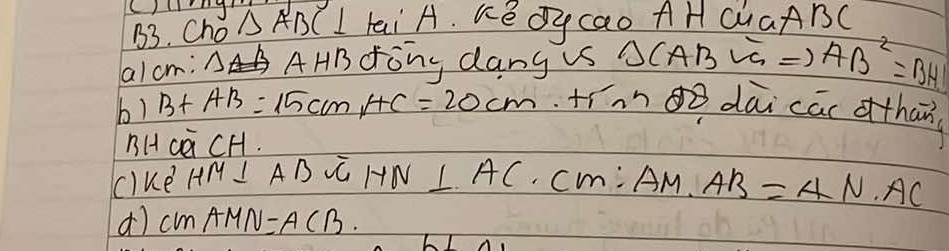 B3. Cho Δ ABC ⊥ tại A. Kẻ đg cao AH của ABC
a) cm: Δ AHB đồng dạng vs Δ CAB và =) AB² = BH.
b) Bt AB = 15cm, AC = 20cm. tính độ dài các đthẳng
BH và CH.
c) Kẻ HM ⊥ AB và HN ⊥ AC. cm: AM. AB = AN. AC
d) cm AMN = ACB.